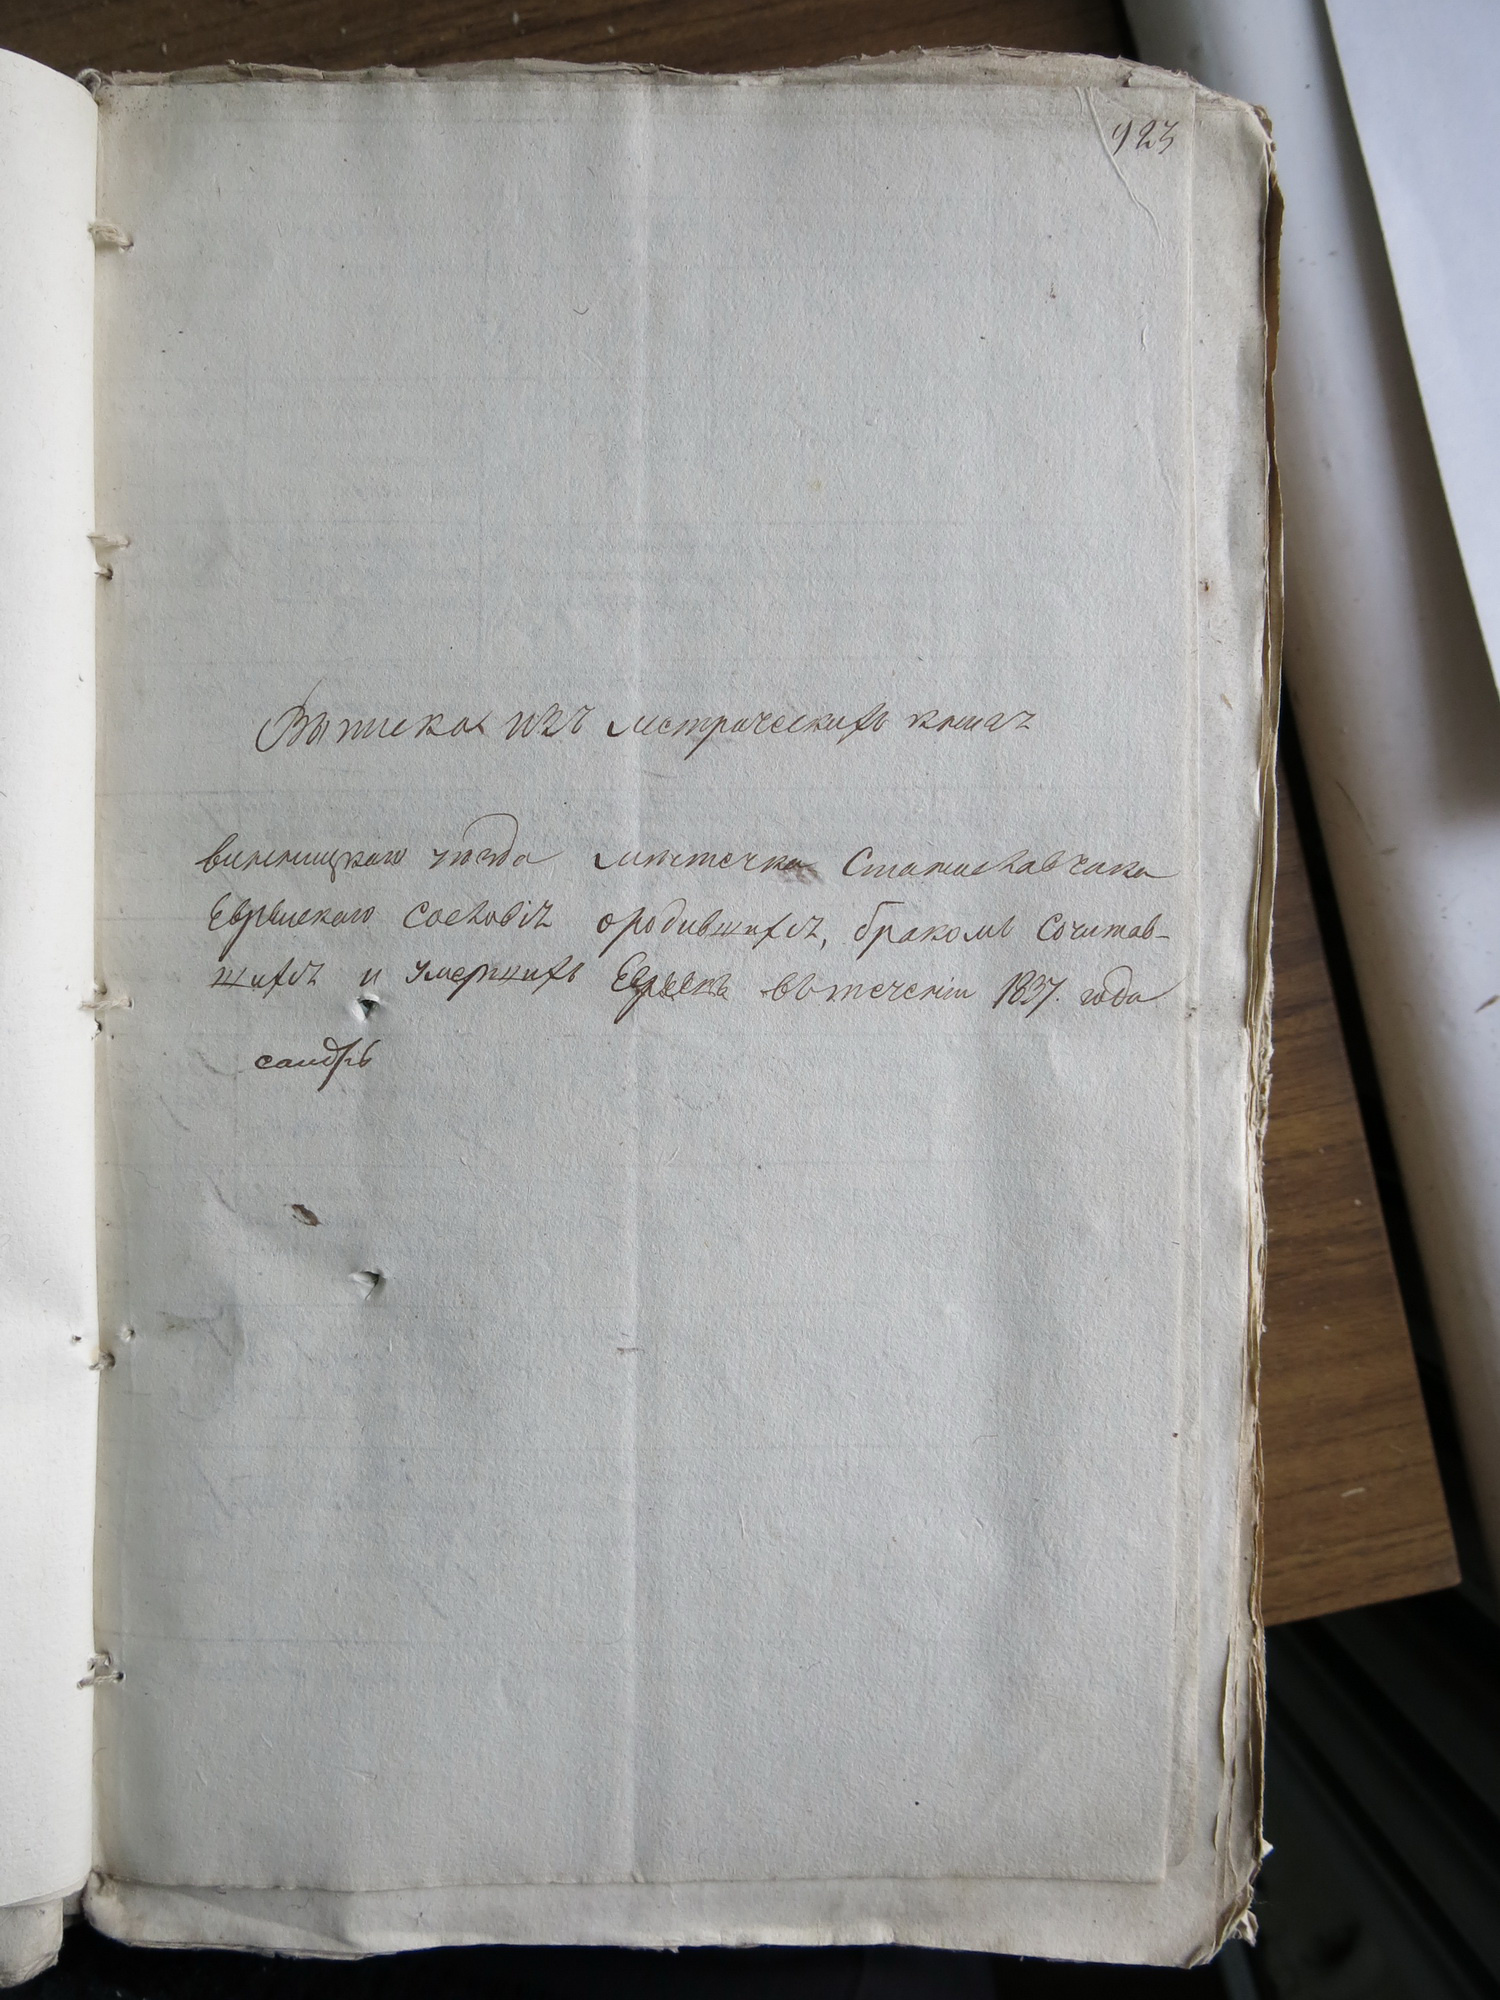 923
Выписка изъ метрическихъ книгъ
винницкаго уѣзда мѣстечка Станиславчика
Еврейскаго Сословія ородившихся, бракомъ Сочитав-
шихся и умершихъ Евреевъ вътеченіи 1837. года